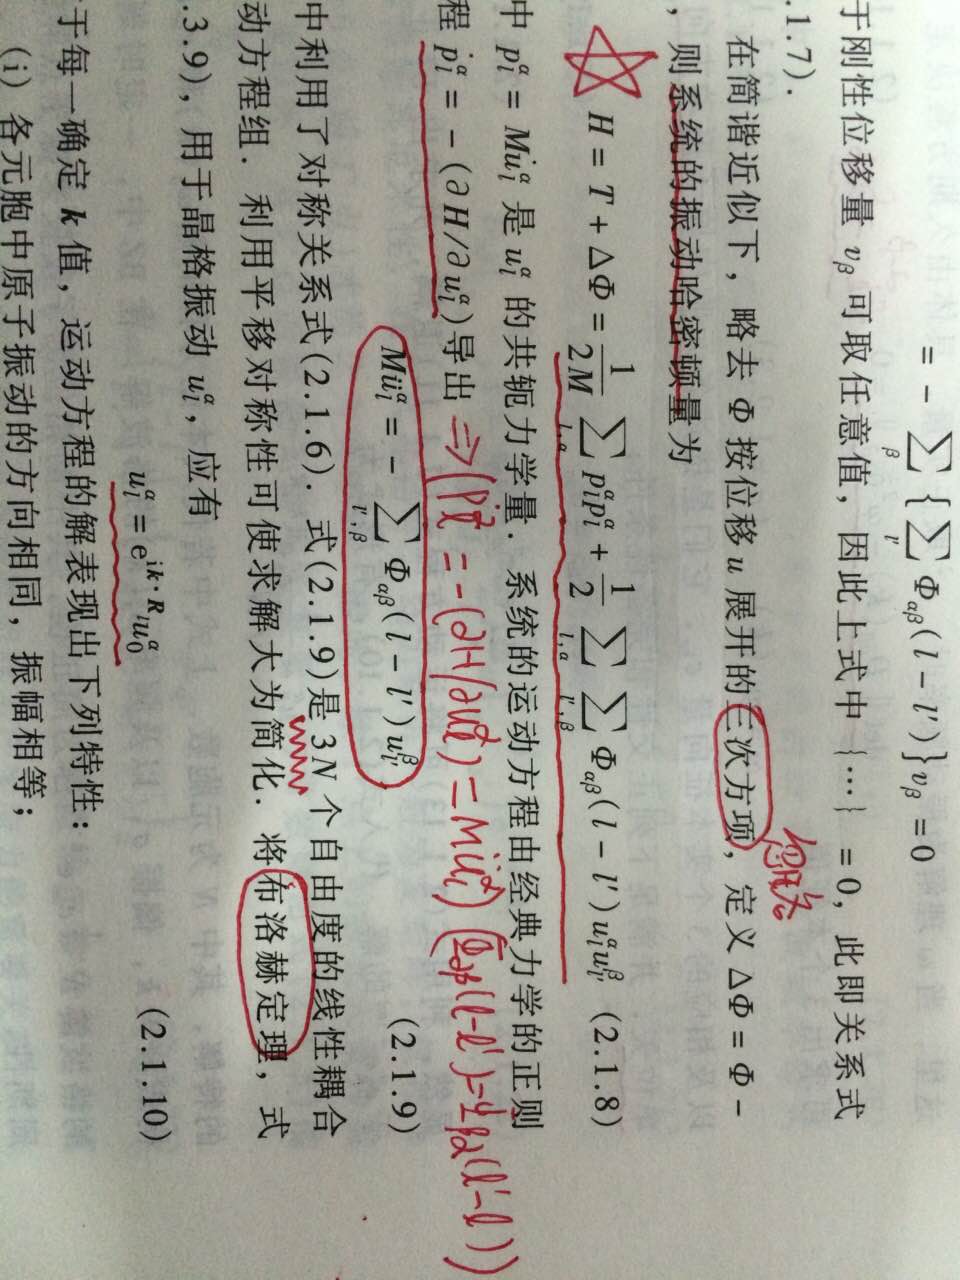 = - ∑_β { ∑_{l'} Φ_{αβ}(l - l') } v_β = 0
于刚性位移量 v_β 可取任意值，因此上式中 {…} = 0，此即关系式
.1.7).
在简谐近似下，略去 Φ 按位移 u 展开的三次方项，定义 ΔΦ = Φ -
，则系统的振动哈密顿量为
H = T + ΔΦ = \frac{1}{2M} ∑_{l,α} p_l^α p_l^α + \frac{1}{2} ∑_{l,α} ∑_{l',β} Φ_{αβ}(l - l') u_l^α u_{l'}^β (2.1.8)
中 p_l^α = M\dot{u}_l^α 是 u_l^α 的共轭力学量．系统的运动方程由经典力学的正则
程 \dot{p}_l^α = - (∂H/∂u_l^α) 导出 ⇒ (\dot{p}_l^α = -(∂H/∂u_l^α) = M\ddot{u}_l^α) (Φ_{αβ}(l-l') = Φ_{βα}(l'-l))
M\ddot{u}_l^α = - ∑_{l',β} Φ_{αβ}(l - l') u_{l'}^β (2.1.9)
中利用了对称关系式(2.1.6)．式(2.1.9)是 3N 个自由度的线性耦合
动方程组．利用平移对称性可使求解大为简化．将布洛赫定理，式
.3.9)，用于晶格振动 u_l^α，应有
u_l^α = e^{ik·R_l} u_0^α (2.1.10)
于每一确定 k 值，运动方程的解表现出下列特性：
(i) 各元胞中原子振动的方向相同，振幅相等；